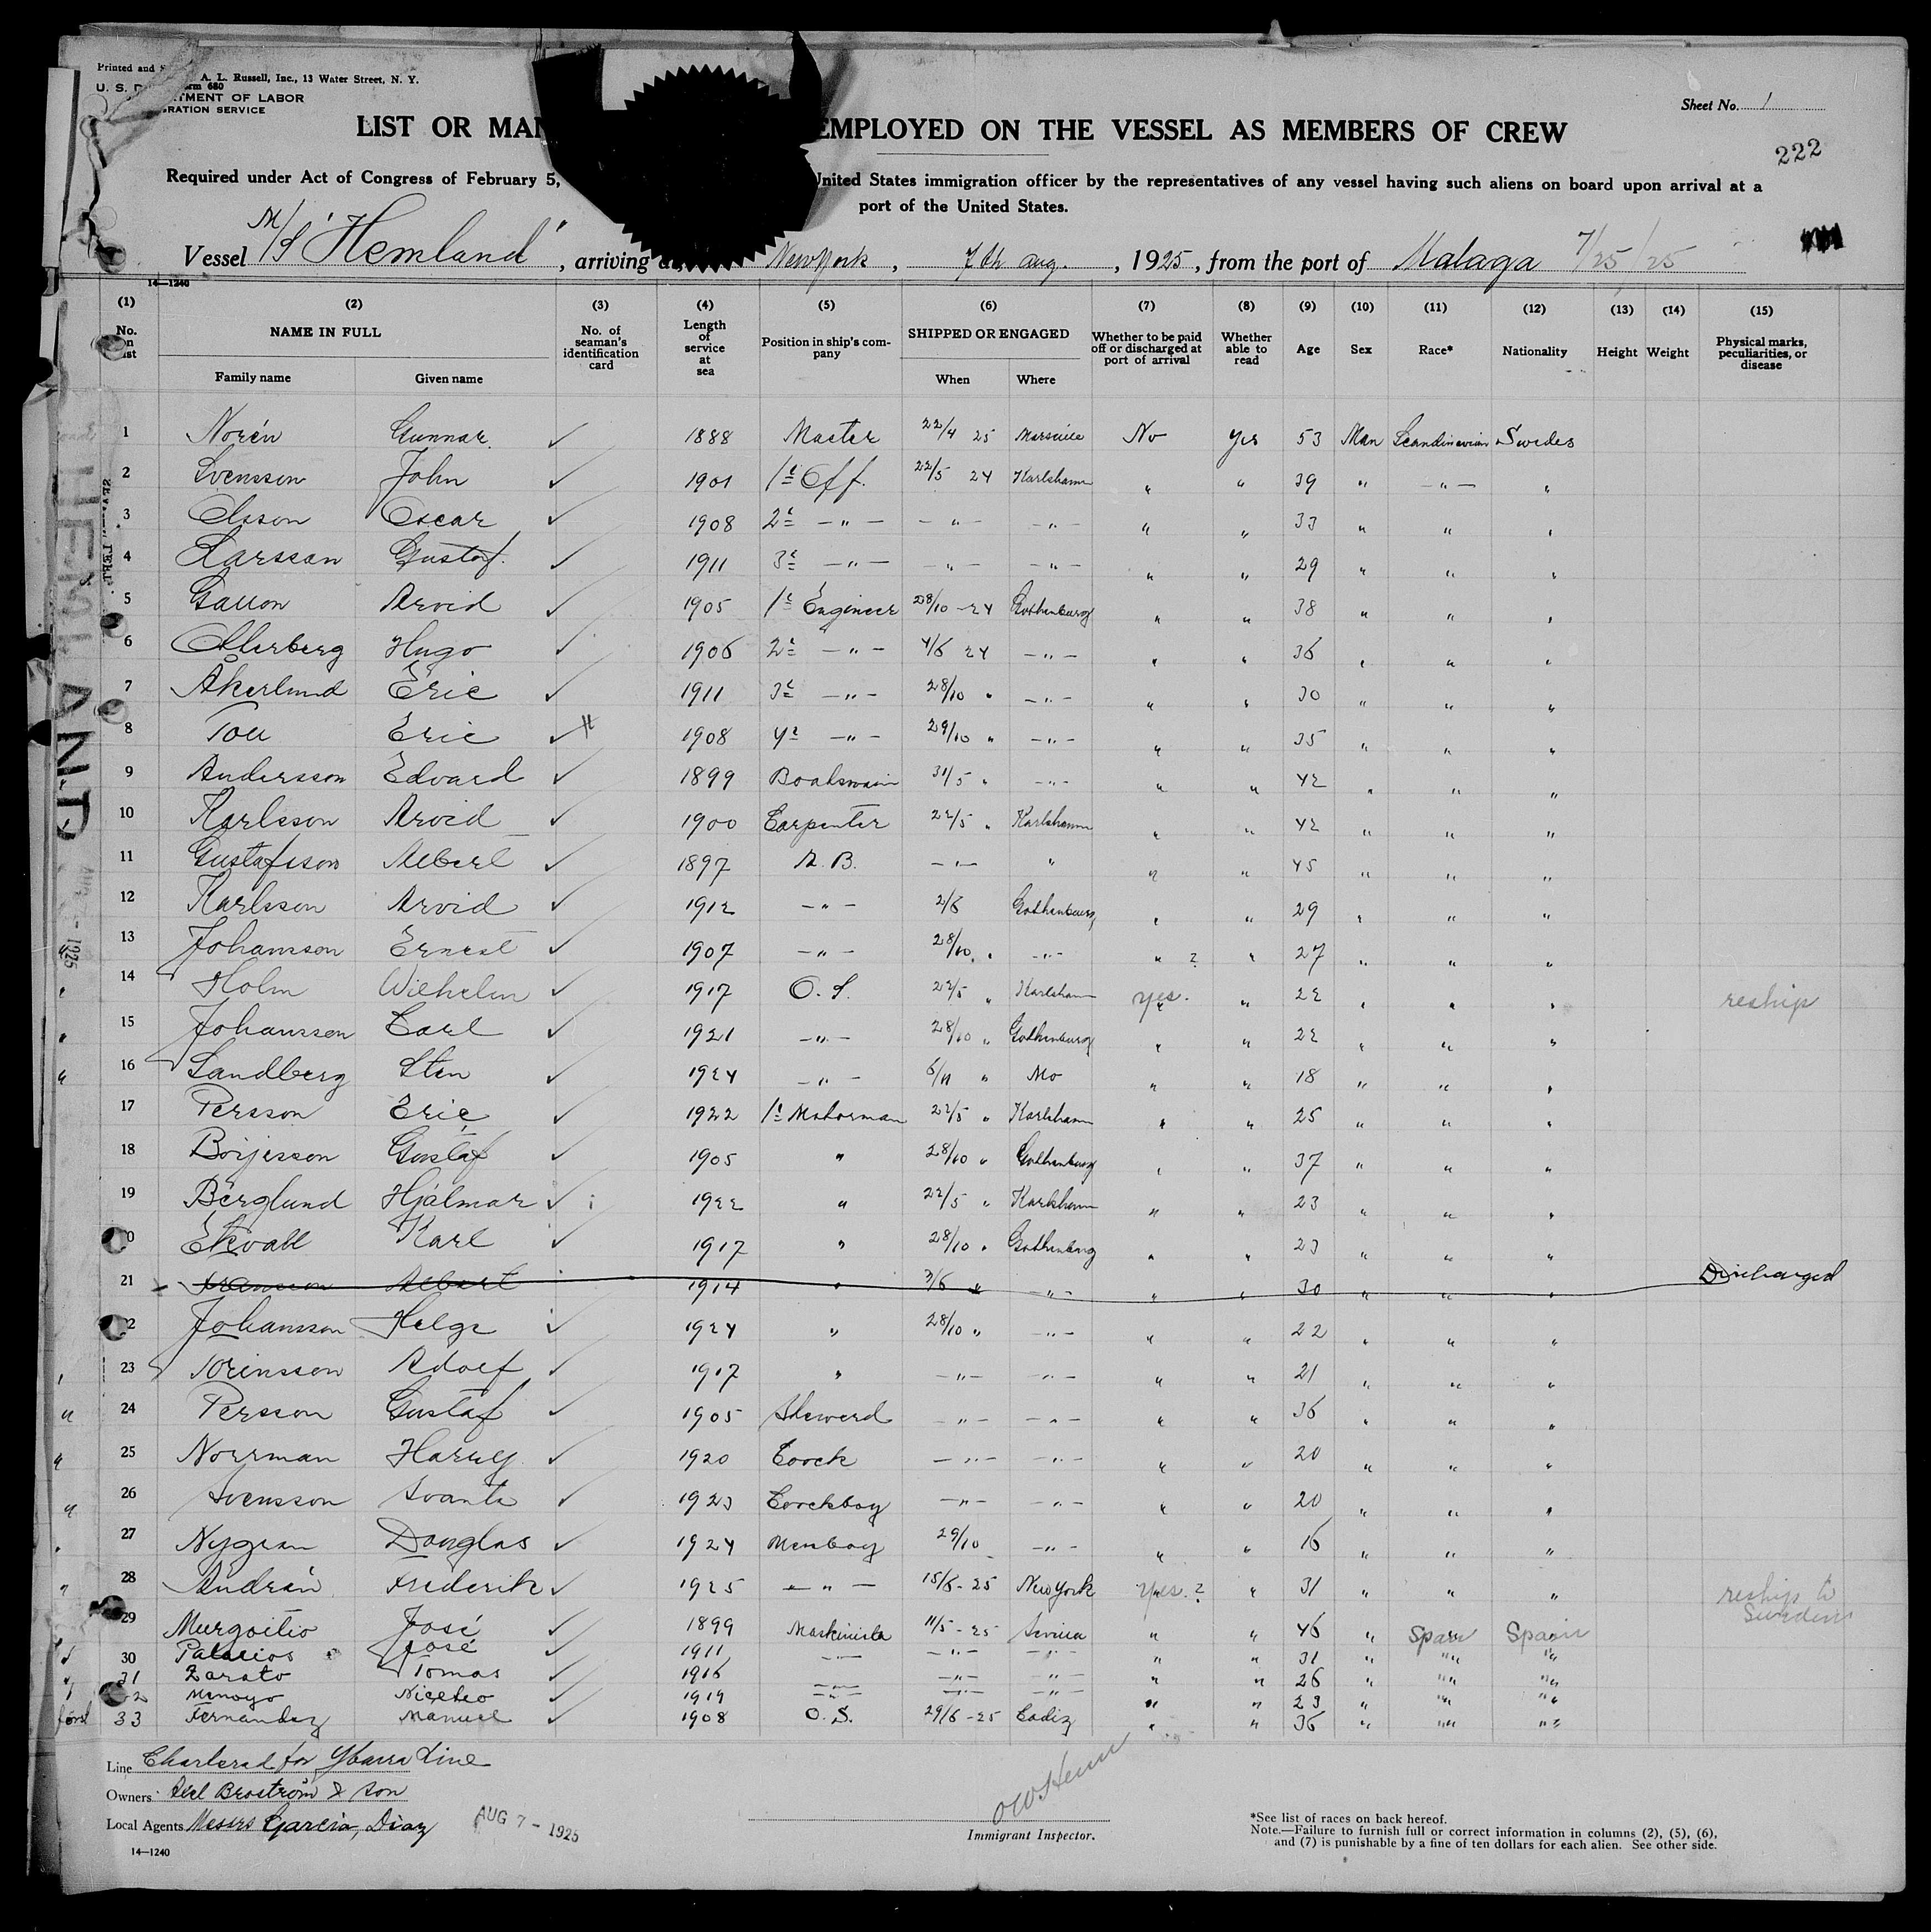 Printed and A. L. Russell, Inc., 13 Water Street, N. Y.
Form 680
U. S. DEPARTMENT OF LABOR
IMMIGRATION SERVICE
Sheet No. 1
LIST OR MAN EMPLOYED ON THE VESSEL AS MEMBERS OF CREW
222
Required under Act of Congress of February 5, United States immigration officer by the representatives of any vessel having such aliens on board upon arrival at a
port of the United States.
Vessel M/S "Hemland", arriving at New York, 7th aug., 1925, from the port of Malaga 7/25/25
14—1240
(1) (2) (3) (4) (5) (6) (7) (8) (9) (10) (11) (12) (13) (14) (15)
No. on list NAME IN FULL Family name Given name No. of seaman's identification card Length of service at sea Position in ship's company SHIPPED OR ENGAGED When Where Whether to be paid off or discharged at port of arrival Whether able to read Age Sex Race* Nationality Height Weight Physical marks, peculiarities, or disease
1 Norén Gunnar ✓ 1888 Master 22/4 25 Marseille No Yes 53 Man Scandinavian Swedes
2 Svensson John ✓ 1901 1st Off. 22/5 24 Karlshamn " " 39 " — " — "
3 Olsson Oscar ✓ 1908 2d — " — — " — — " — " " 33 " " "
4 Larsson Gustaf ✓ 1911 3d — " — — " — — " — " " 29 " " "
5 Arvid ✓ 1905 1st Engineer 28/10 - 24 Gothenburg " " 38 " " "
6 Hugo ✓ 1906 2d — " — 4/6 24 — " — " " 36 " " "
7 Åkerlund Eric ✓ 1911 3d — " — 28/10 " — " — " " 30 " " "
8 Eric ✓ 1908 4d — " — 29/10 " — " — " " 35 " " "
9 Andersson Edvard ✓ 1899 Boatswain 31/5 " — " — " " 42 " " "
10 Karlsson Arvid ✓ 1900 Carpenter 22/5 " Karlshamn " " 42 " " "
11 Gustafsson Albert ✓ 1897 A. B. — " — " " " 45 " " "
12 Karlsson Arvid ✓ 1912 — " — 2/6 Gothenburg " " 29 " " "
13 Johansson Ernest ✓ 1907 — " — 28/10 " — " — " ? " 27 " " "
14 Holm Wilhelm ✓ 1917 O. S. 22/5 " Karlshamn yes. " 22 " " " reship
15 Johansson Carl ✓ 1921 — " — 28/10 " Gothenburg " " 22 " " "
16 Sandberg Sten ✓ 1924 — " — 6/11 " Mo " " 18 " " "
17 Persson Eric ✓ 1922 1st Motorman 22/5 " Karlshamn " " 25 " " "
18 Börjesson Gustaf ✓ 1905 " 28/10 " Gothenburg " " 37 " " "
19 Berglund Hjalmar ✓ 1922 " 22/5 " Karlshamn " " 23 " " "
20 Ekvall Karl ✓ 1917 " 28/10 " Gothenburg " " 23 " " "
21 Albert 1914 " 3/6 " — " — " " 30 " " " Discharged
22 Johansson Helge ✓ 1924 " 28/10 " — " — " " 22 " " "
23 Adolf ✓ 1917 " — " — — " — " " 21 " " "
24 Persson Gustaf ✓ 1905 Steward — " — — " — " " 36 " " "
25 Norrman Harry ✓ 1920 Coock — " — — " — " " 20 " " "
26 Svensson Svante ✓ 1923 Coockboy — " — — " — " " 20 " " "
27 Nygren Douglas ✓ 1924 Messboy 29/10 — " — " " 16 " " "
28 Andrén Frederik ✓ 1925 — " — 15/6 - 25 New York Yes. ? " 31 " " " reship to Sweden
29 Murgoitio José ✓ 1899 Maskinista 11/5 - 25 Sevilla " " 46 " Spain Spain
30 Palacios José ✓ 1911 — " — — " — — " — " " 31 " " "
31 Zarato Tomas ✓ 1916 — " — — " — — " — " " 26 " " "
32 Menoyo Niceteo ✓ 1919 — " — — " — — " — " " 23 " " "
33 Fernandez Manuel ✓ 1908 O. S. 29/6 - 25 Cadiz " " 36 " " "
HEMLAND
AUG 7 - 1925
Line Charterad for Ybarra Line
Owners Axel Broström & Son
Local Agents Messrs Garcia, Diaz AUG 7 - 1925
Immigrant Inspector.
*See list of races on back hereof.
Note.—Failure to furnish full or correct information in columns (2), (5), (6),
and (7) is punishable by a fine of ten dollars for each alien. See other side.
14—1240